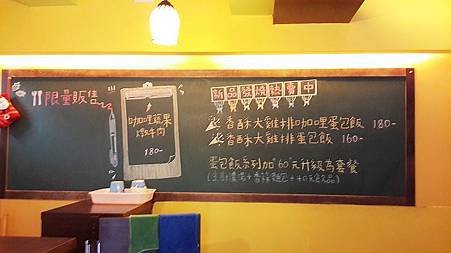 限量販售
咖哩蘋果
燉牛肉
180-
新品發燒熱賣中
香酥大雞排咖哩蛋包飯 180-
香酥大雞排蛋包飯 160-
蛋包飯系列加60元升級為套餐
濃湯+香蒜麵包+40元飲品)